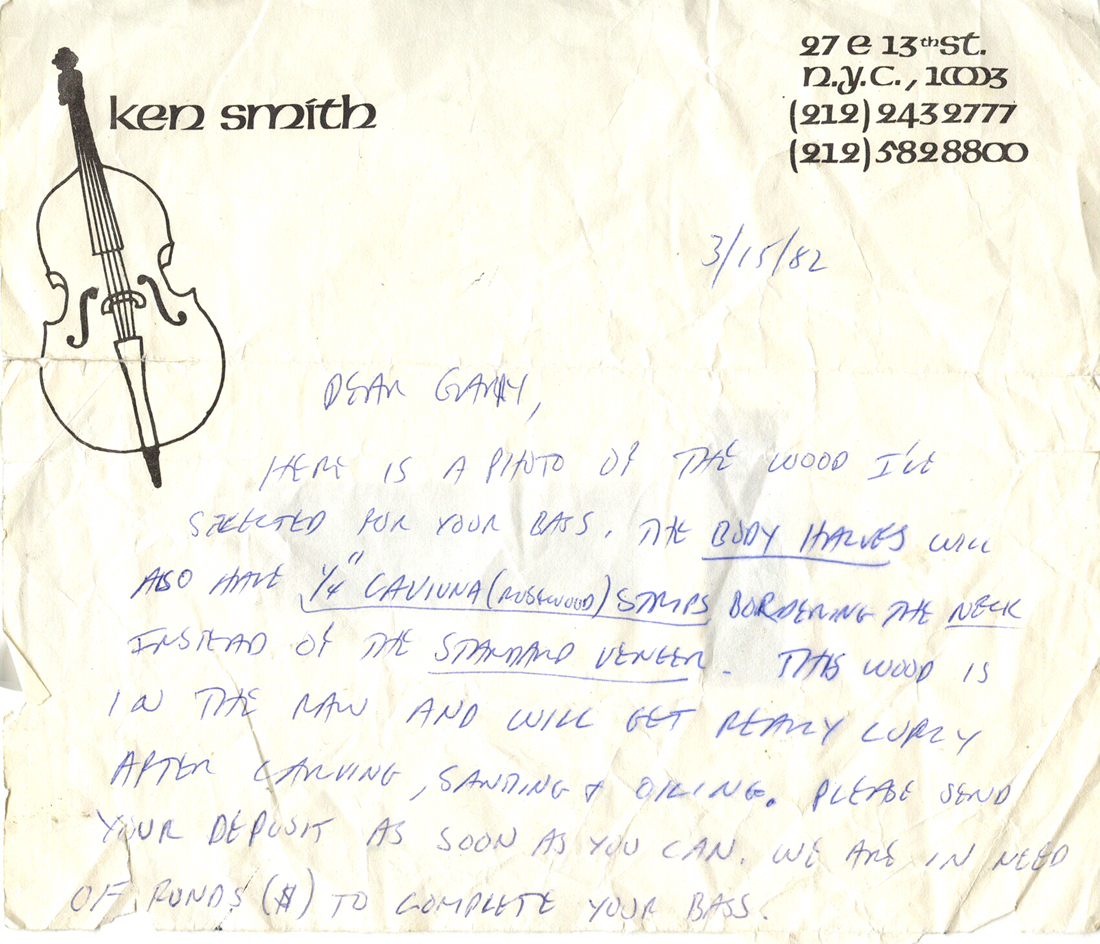 ken smith
27 E 13th St.
N.Y.C., 10003
(212) 243 2777
(212) 582 8800
3/15/82
DEAR GARY,
HERE IS A PHOTO OF THE WOOD I'VE
SELECTED FOR YOUR BASS. THE BODY HALVES WILL
ALSO HAVE 1/4" CAVIUNA (ROSEWOOD) STRIPS BORDERING THE NECK
INSTEAD OF THE STANDARD VENEER. THIS WOOD IS
IN THE RAW AND WILL GET REALLY CURLY
AFTER CARVING, SANDING & OILING. PLEASE SEND
YOUR DEPOSIT AS SOON AS YOU CAN. WE ARE IN NEED
OF FUNDS ($) TO COMPLETE YOUR BASS.